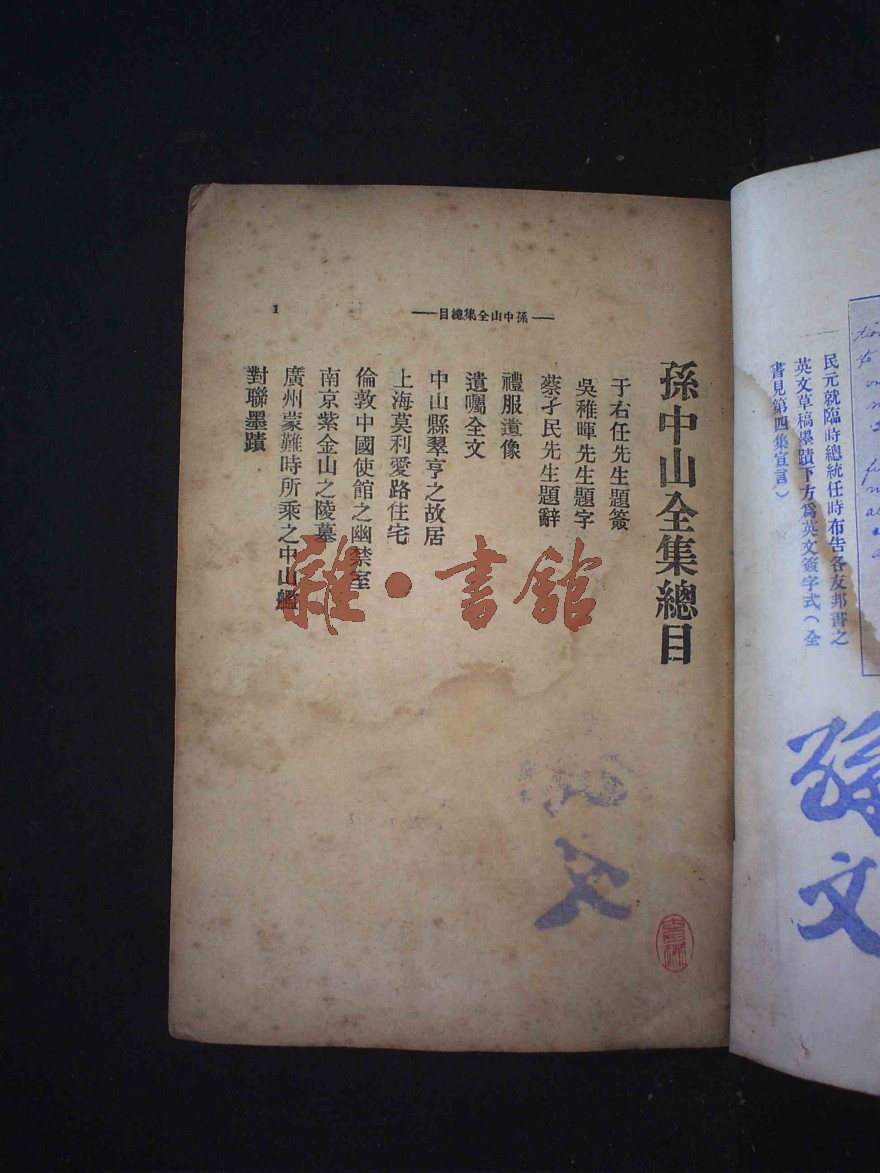 民元就臨時總統任時布告各友邦書之
英文草稿墨蹟下方爲英文簽字式（全
書見第四集宣言）
孫文
—孫中山全集總目—
1
孫中山全集總目
于右任先生題簽
吳稚暉先生題字
蔡孑民先生題辭
禮服遺像
遺囑全文
中山縣翠亨之故居
上海莫利愛路住宅
倫敦中國使館之幽禁室
南京紫金山之陵墓
廣州蒙難時所乘之中山艦
對聯墨蹟
雜·書館